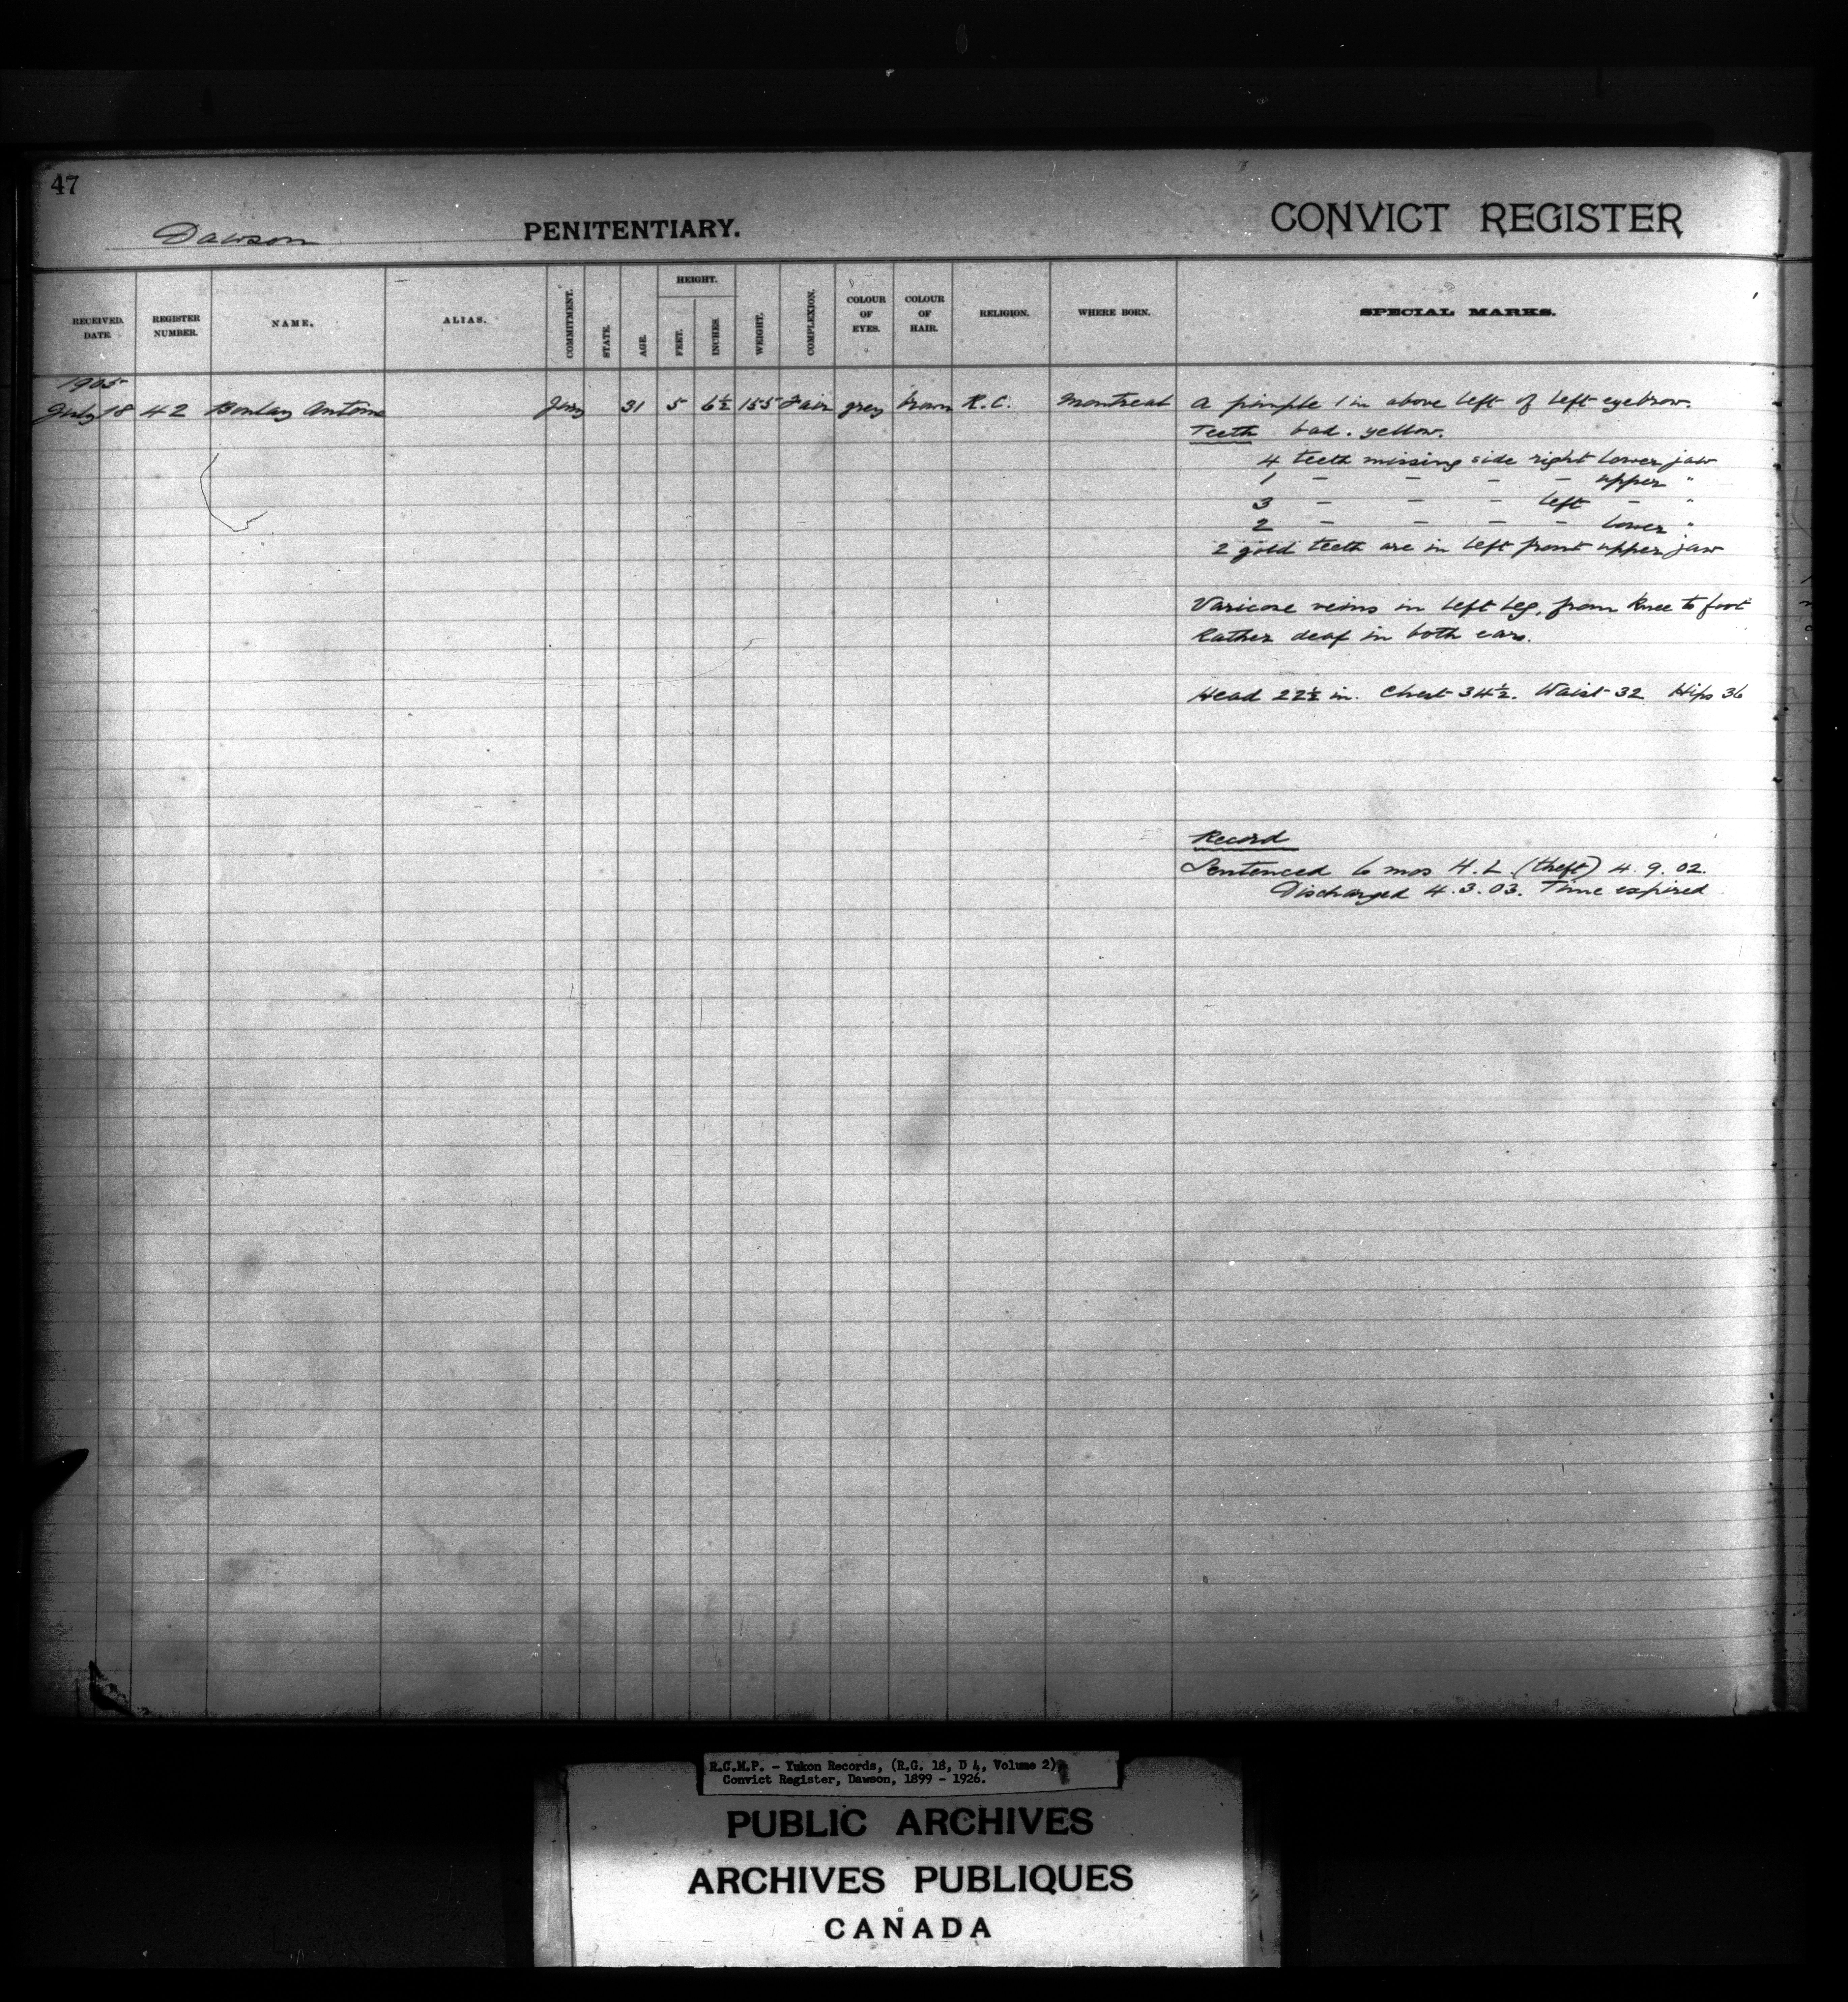 47
Dawson PENITENTIARY. CONVICT REGISTER
RECEIVED. DATE. REGISTER NUMBER. NAME. ALIAS. COMMITMENT. STATE. AGE. HEIGHT. FEET. INCHES. WEIGHT. COMPLEXION. COLOUR OF EYES. COLOUR OF HAIR. RELIGION. WHERE BORN. SPECIAL MARKS.
1905
July 18 42 Antoine 31 5 6½ 155 Fair grey brown R.C. Montreal A pimple 1 in above left of left eyebrow.
Teeth bad. yellow.
4 teeth missing side right lower jaw
1 – – – – upper "
3 – – – left – "
2 – – – – lower "
2 gold teeth are in left front upper jaw
Varicose veins in left leg, from knee to foot
Rather deaf in both ears.
Head 22½ in. Chest 34½. Waist 32 Hips 36
Record
Sentenced 6 mos H.L. (theft) 4.9.02.
Discharged 4.3.03. Time expired
R.C.M.P. - Yukon Records, (R.G. 18, D 4, Volume 2)
Convict Register, Dawson, 1899 - 1926.
PUBLIC ARCHIVES
ARCHIVES PUBLIQUES
CANADA